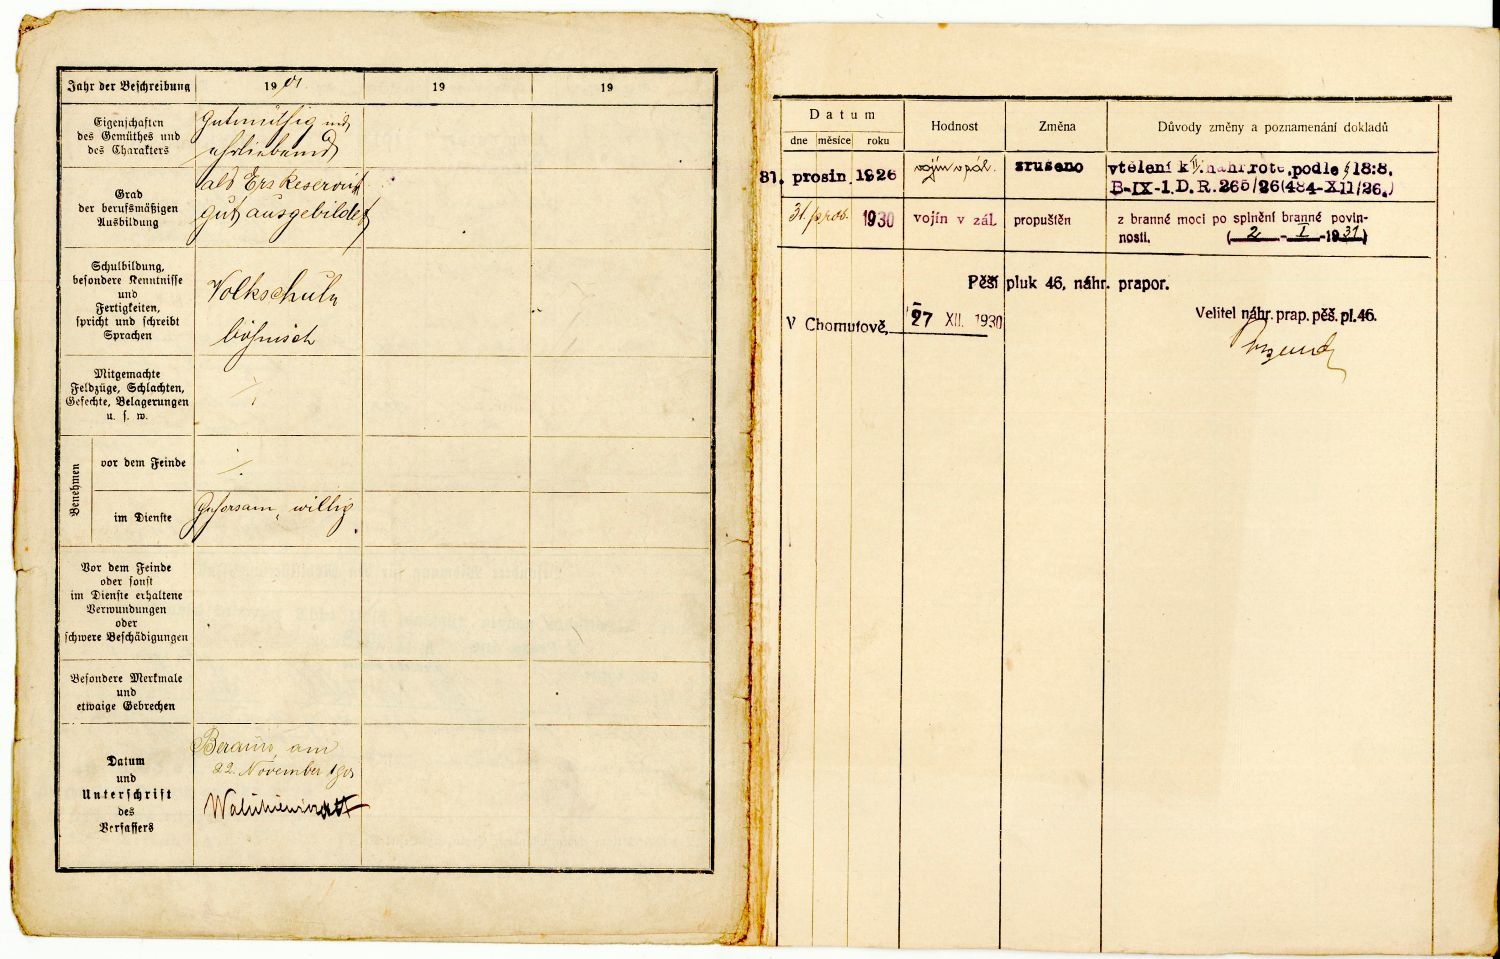 Jahr der Beschreibung
1901.
19
19
Eigenschaften
des Gemüthes und
des Charakters
gutmüthig und
ehrliebend
Grad
der berufsmäßigen
Ausbildung
als Ers Reservist
gut ausgebildet
Schulbildung,
besondere Kenntnisse
und
Fertigkeiten,
spricht und schreibt
Sprachen
Volkschule
böhmisch
Mitgemachte
Feldzüge, Schlachten,
Gefechte, Belagerungen
u. s. w.
Benehmen
vor dem Feinde
im Dienste
Gehorsam, willig
Vor dem Feinde
oder sonst
im Dienste erhaltene
Verwundungen
oder
schwere Beschädigungen
Besondere Merkmale
und
etwaige Gebrechen
Datum
und
Unterschrift
des
Verfassers
Beraun, am
22. November 1901
Datum
dne měsíce roku
Hodnost
Změna
Důvody změny a poznamenání dokladů
31. prosin. 1926
vojín v zál.
zrušeno
vtělení k náhr.rotě, podle § 18:8.
B-IX-1.D.R.265/26(484-XII/26.)
31. pros. 1930
vojín v zál.
propuštěn
z branné moci po splnění branné povin-
nosti. (2 - I - 1931)
Pěší pluk 46, náhr. prapor.
V Chomutově, 27 XII. 1930
Velitel náhr. prap. pěš. pl. 46.